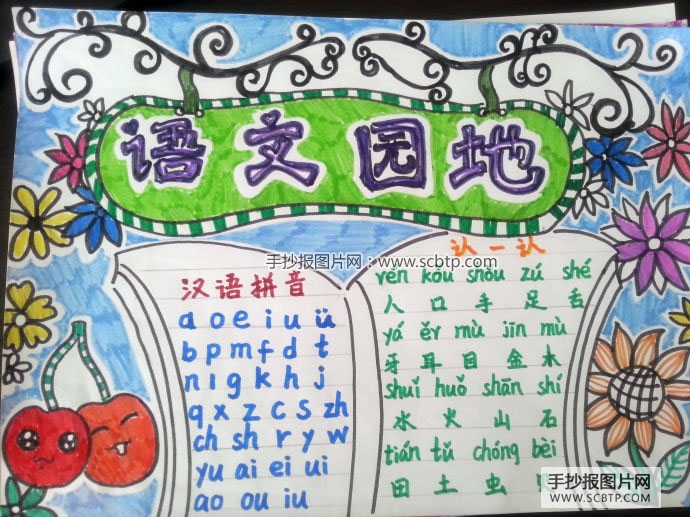 语文园地
手抄报图片网:www.scbtp.com
汉语拼音
a o e i u ü
b p m f d t
n l g k h j
q x z c s zh
ch sh r y w
yu ai ei ui
ao ou iu
认一认
rén kǒu shǒu zú shé
人 口 手 足 舌
yá ěr mù jīn mù
牙 耳 目 金 木
shuǐ huǒ shān shí
水 火 山 石
tián tǔ chóng bèi
田 土 虫
手抄报图片网
www.SCBTP.COM